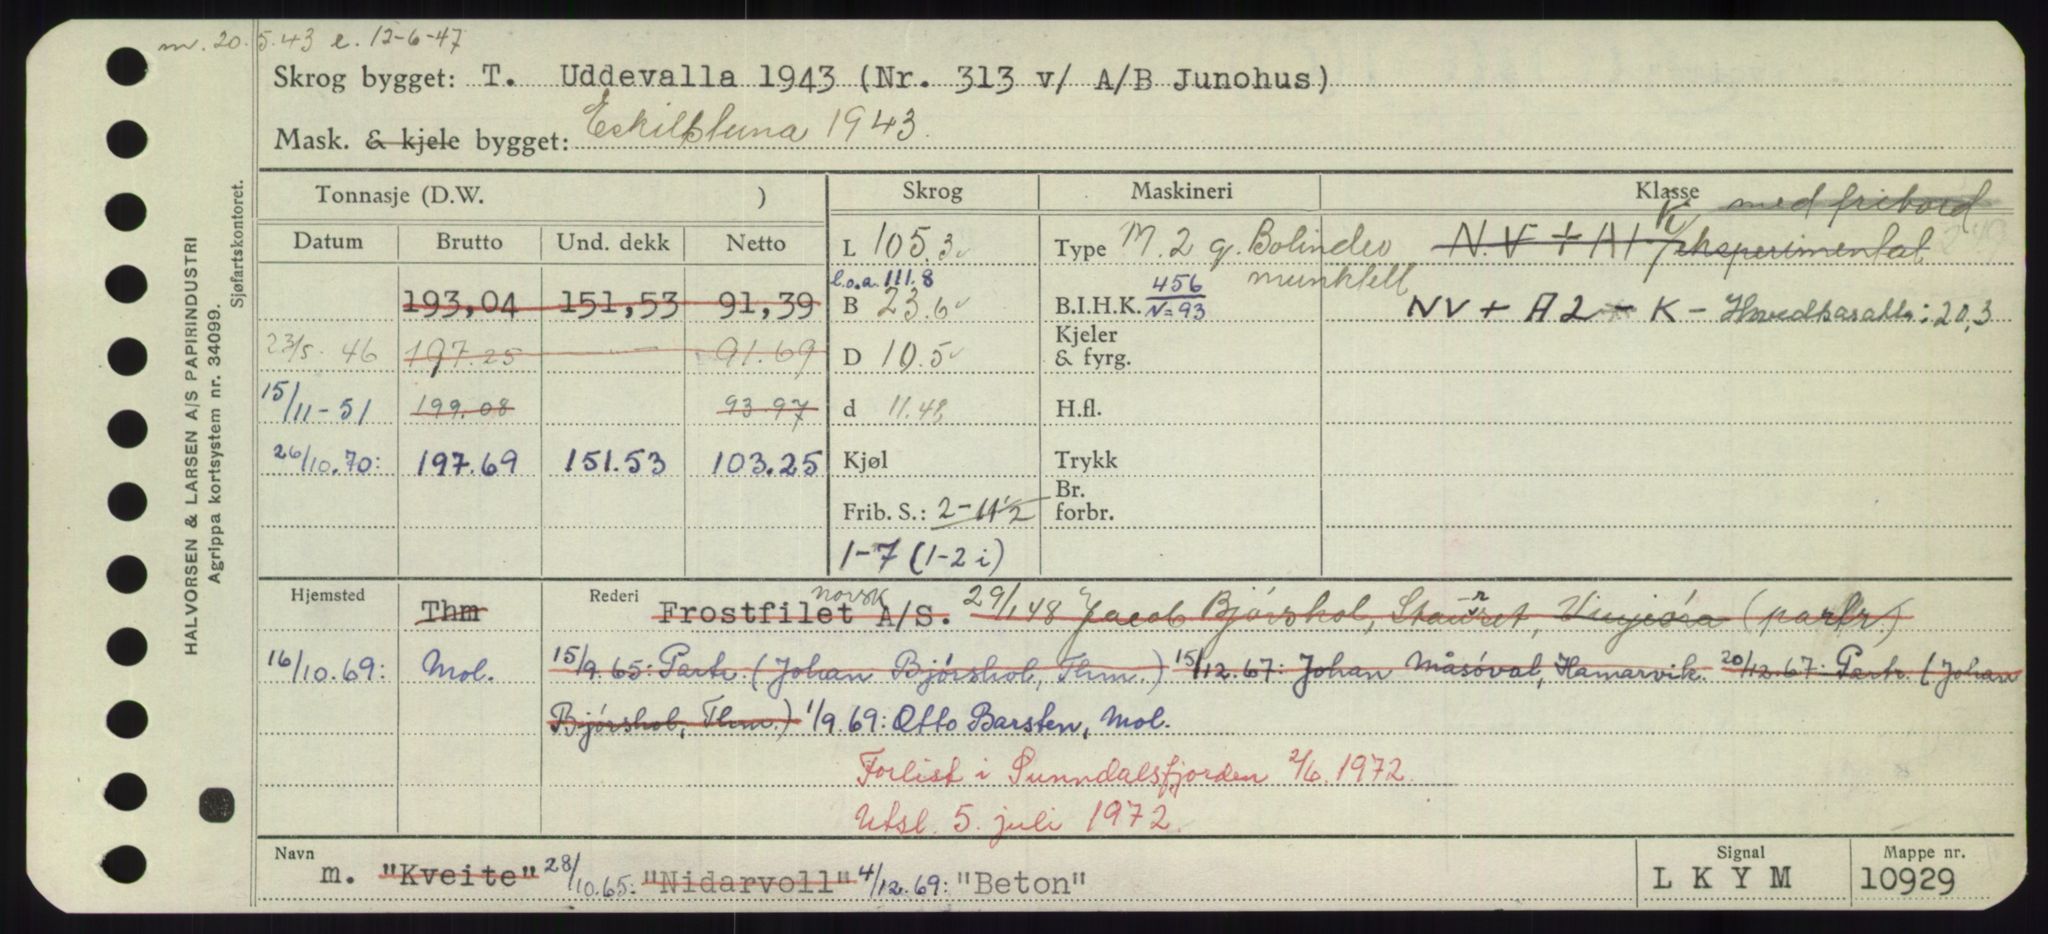 m. 20.5.43 e. 12-6-47
Skrog bygget: T. Uddevalla 1943 (Nr. 313 v/ A/B Junohus)
Mask. & kjele bygget: Eskilstuna 1943.
Tonnasje (D.W. ) Skrog Maskineri Klasse
K med fribord
Datum Brutto Und. dekk Netto L 105.3 Type M. 2 g. Bolinder N.V + A1 eksperimental
munktell
l.o.a. 111.8
193,04 151,53 91,39 B 23.6 B.I.H.K. 456 N=93 NV + A2 - K - Hovedkasatt: 20,3
23/5. 46 197.25 — 91.69 D 10.5 Kjeler & fyrg.
15/11-51 199.08 93.97 d 11.48 H.fl.
26/10.70: 197.69 151.53 103.25 Kjøl Trykk
Frib. S.: 2-11½ Br. forbr.
1-7 (1-2 i)
Hjemsted Thm Rederi Frostfilet norsk A/S. 29/1 48 Jacob Bjørshol, Stauret, Vinjeøra (partr.)
16/10.69: Mol. 15/9.65: Partr. (Johan Bjørshol, Thm.) 15/12.67: Johan Måsøval, Hamarvik. 20/12.67: Partr. (Johan
Bjørshol, Thm.) 1/9.69: Otto Barsten, Mol.
Forlist i Sunndalsfjorden 2/6.1972.
Utsl. 5. juli 1972.
Navn Signal Mappe nr.
m. "Kveite" 28/10.65: "Nidarvoll" 4/12.69: "Beton" L K Y M 10929
HALVORSEN & LARSEN A/S PAPIRINDUSTRI
Agrippa kortsystem nr. 34099.
Sjøfartskontoret.